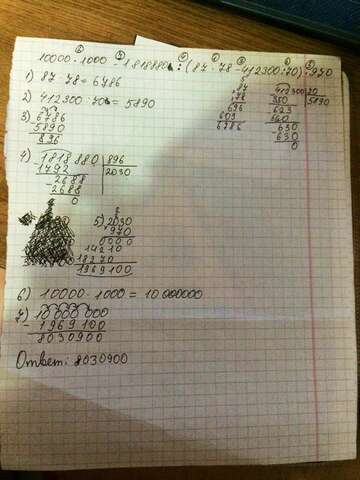 10000 · 1000 - 1818880 : (87 · 78 - 412300 : 70) · 970
1) 87 · 78 = 6786
87
78
696
609
6786
412300 70
350 5890
623
560
630
630
0
2) 412300 : 70 = 5890
3) 6786
5890
896
4) 1818880 896
1792 2030
2688
2688
0
5) 2030
970
0000
14210
18270
1969100
6) 10000 · 1000 = 10000000
7) 10000000
- 1969100
8030900
Ответ: 8030900